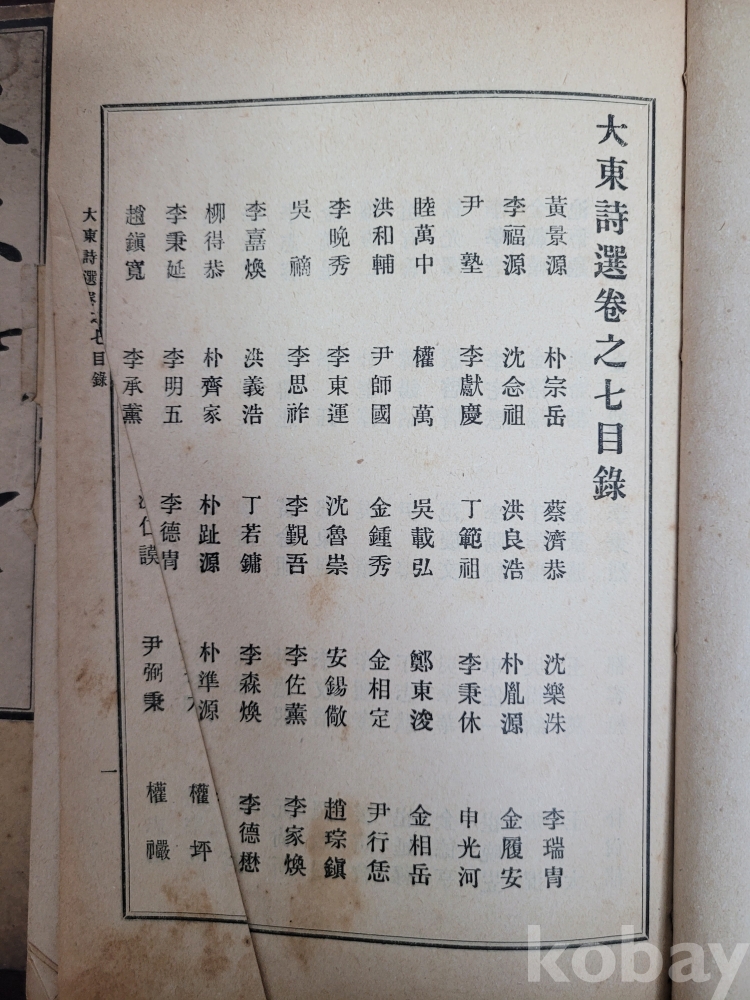 大東詩選卷之七目錄
黃景源 朴宗岳 蔡濟恭 沈樂洙 李瑞胄
李福源 沈念祖 洪良浩 朴胤源 金履安
尹塾 李獻慶 丁範祖 李秉休 申光河
睦萬中 權萬 吳載弘 鄭東浚 金相岳
洪和輔 尹師國 金鍾秀 金相定 尹行恁
李晚秀 李東運 沈魯崇 安錫儆 趙琮鎭
吳𥛚 李思祚 李覲吾 李佐薰 李家煥
李嘉煥 洪義浩 丁若鏞 李森煥 李德懋
柳得恭 朴齊家 朴趾源 朴準源 權坪
李秉延 李明五 李德胄
趙鎭寬 李承薰 尹弼秉 權襹
大東詩選卷之七目錄
一
kobay